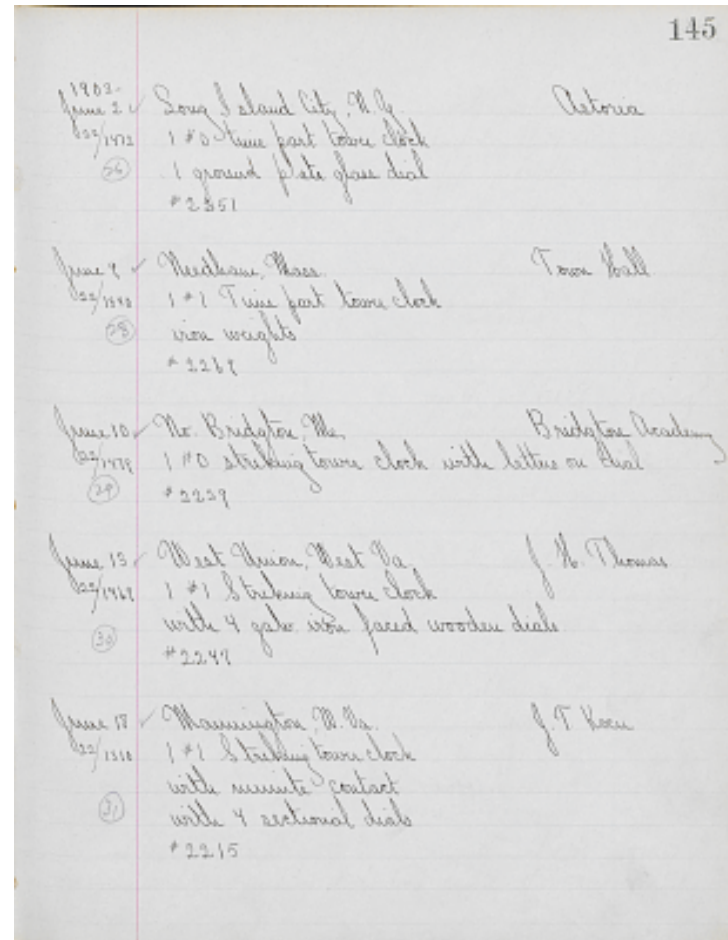 145
1903-
June 2 ✓ Long Island City, N.Y. Astoria
22/1472 1 #0 Time part tower clock
26 1 ground plate glass dial
#2251
June 9 ✓ Needham, Mass. Town Hall
1 #1 Time part tower clock
28 iron weights
June 10 ✓ No. Bridgton, Me. Bridgton Academy
1 #0 striking tower clock with letters on dial
29 #2239
June 13 ✓ West Union, West Va. J. H. Thomas
1 #1 Striking tower clock
30 with 4 galv. iron faced wooden dials
#2247
June 18 ✓ Mannington, W. Va. J. T. Koen
22/1510 1 #1 Striking tower clock
with minute contact
31 with 4 sectional dials
#2215